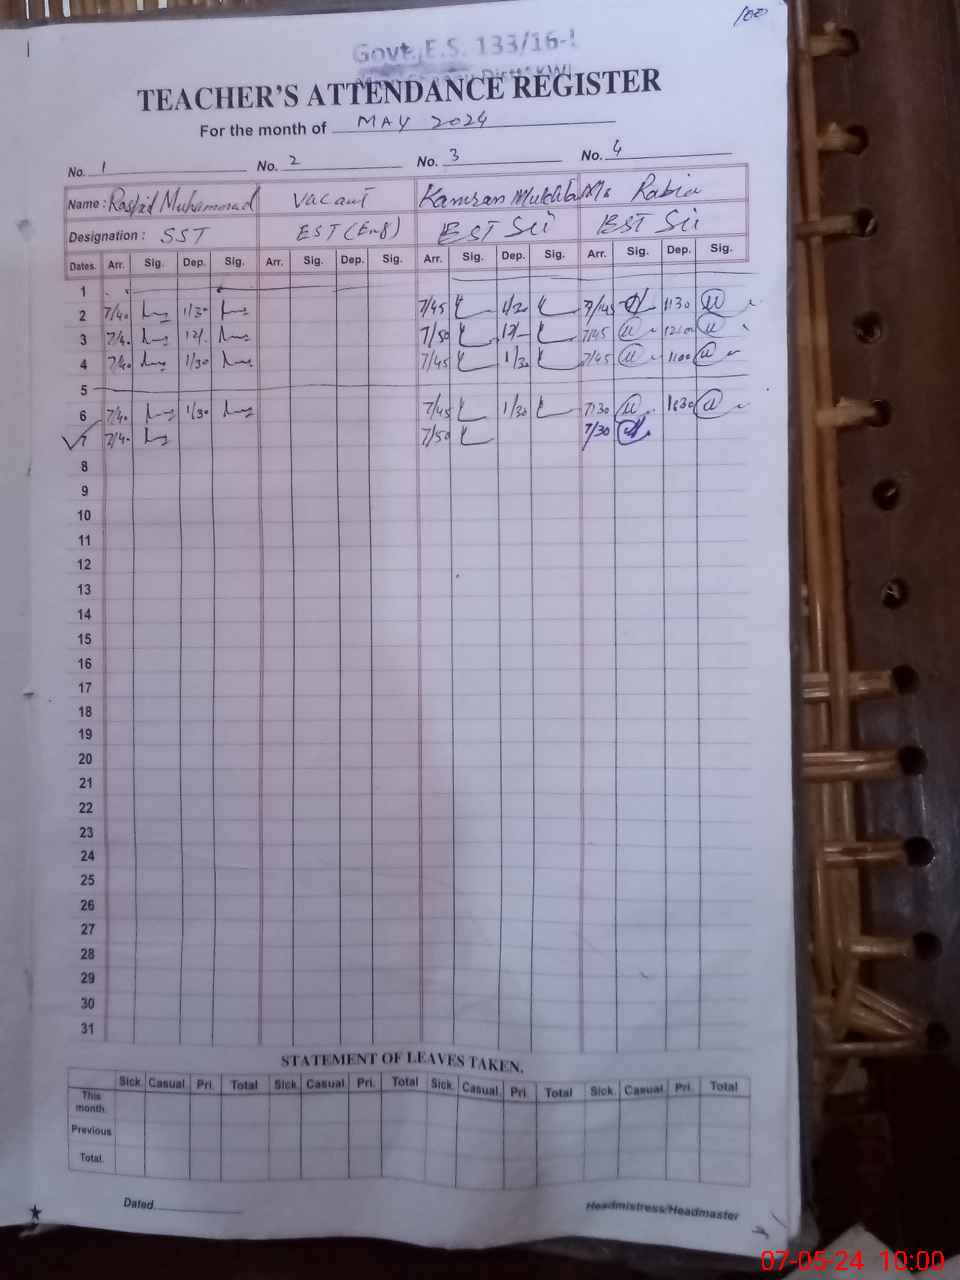 100
Govt. E.S. 133/16-L
TEACHER'S ATTENDANCE REGISTER
For the month of MAY 2024
No. 1 No. 2 No. 3 No. 4
Name : Rashid Muhammad Vacant Kamran Mukhtar Ms Rabia
Designation : SST EST (Eng) EST Sci EST Sci
Dates. Arr. Sig. Dep. Sig. Arr. Sig. Dep. Sig. Arr. Sig. Dep. Sig. Arr. Sig. Dep. Sig.
1
2 7/40 1/30 7/45 1/30 7/45 1130
3 7/40 12/- 7/50 12/- 7/45 1200
4 7/40 1/30 7/45 1/30 7/45 1100
5
6 7/40 1/30 7/45 1/30 7/30 1630
7 7/40 7/50 7/30
8
9
10
11
12
13
14
15
16
17
18
19
20
21
22
23
24
25
26
27
28
29
30
31
STATEMENT OF LEAVES TAKEN.
Sick. Casual. Pri. Total Sick. Casual. Pri. Total Sick. Casual. Pri. Total Sick. Casual. Pri. Total
This month.
Previous
Total.
Dated. Headmistress/Headmaster
07-05-24 10:00